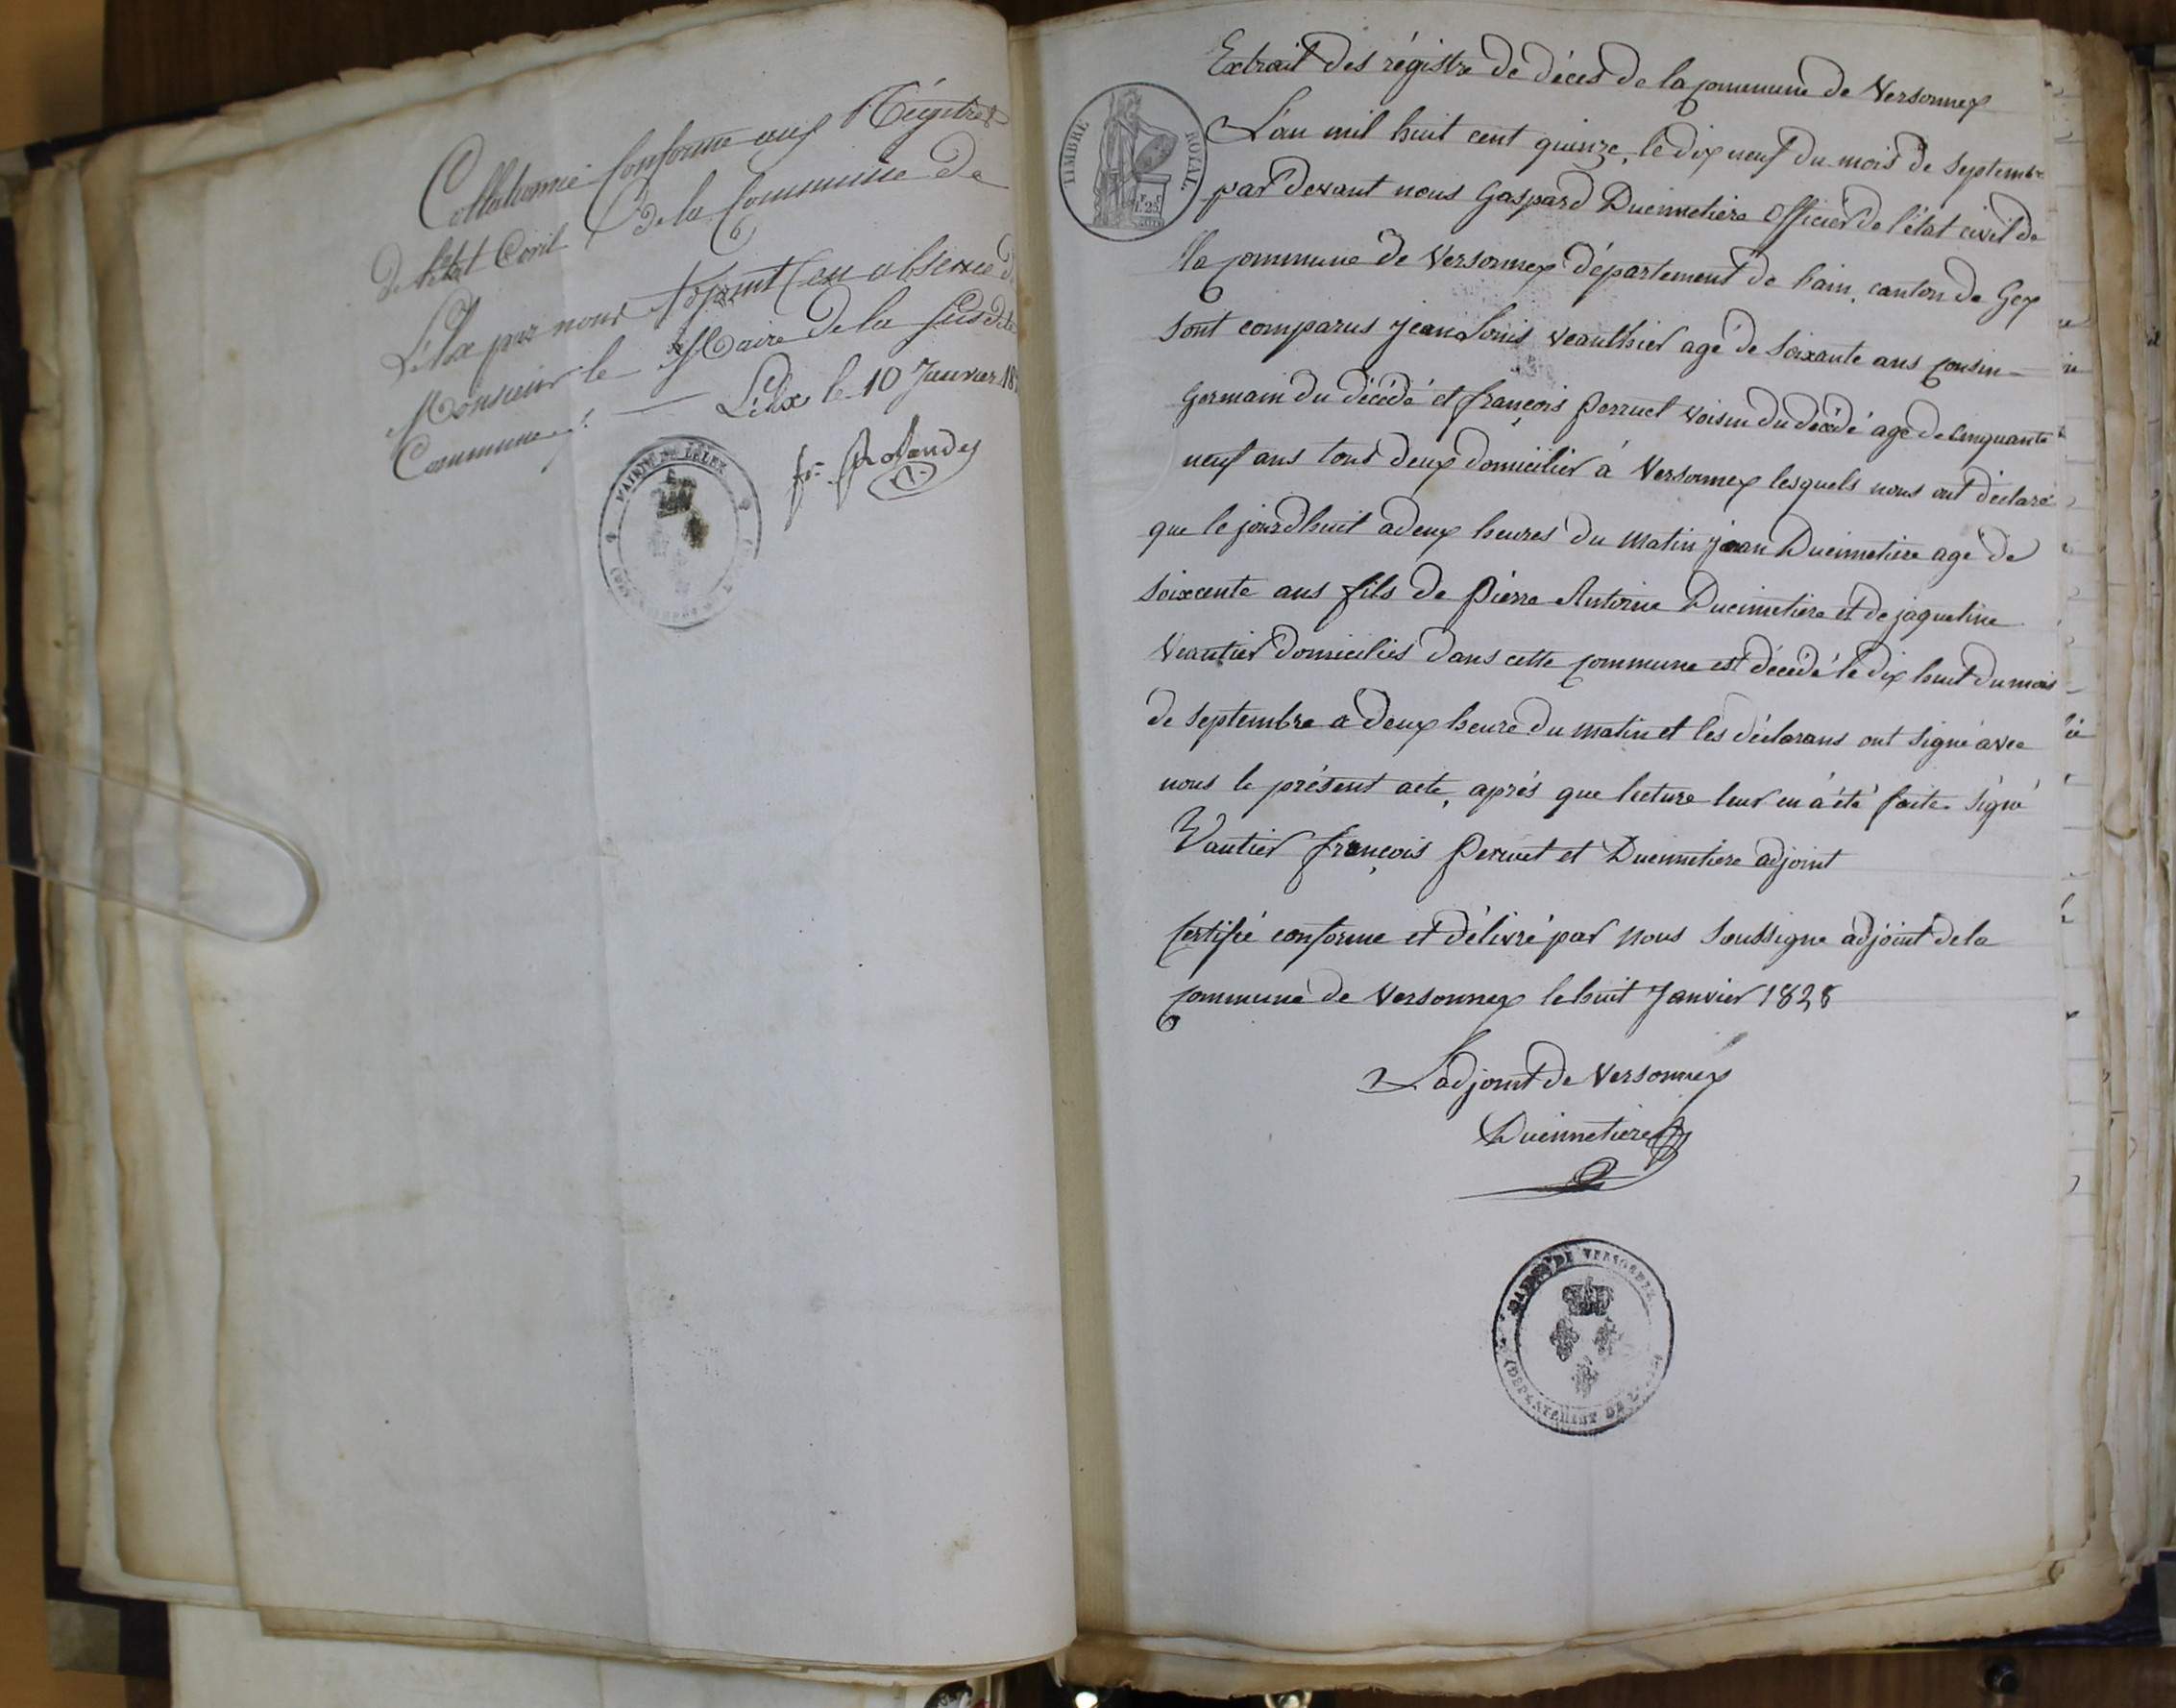 Collationné Conforme aux Régitres
de l'état Civil de la Commune de
Lélex par nous Adjoint en absence de
Monsieur le Maire de la susdite
Commune.
Lélex le 10 Janvier 18
MAIRIE DE LÉLEX
TIMBRE ROYAL
1.25
Extrait des régistre de décès de la commune de Versonnex
L'an mil huit cent quinze, le dix neuf du mois de Septembre
par devant nous Gaspard Ducimetière Officier de l'état civil de
la commune de Versonnex département de lain, canton de Gex
sont comparus Jean Louis Veauthier agé de soixante ans cousin
Germain du décédé et françois Perruet voisin du décédé agé de cinquante
neuf ans tous deux domicilier à Versonnex lesquels nous ont déclaré
que le jourdhuit a deux heures du matin jean Ducimetiere agé de
soixcente ans fils de Pierre Antoine Ducimetiere et de jaqueline
Veautier domiciliés dans cette commune est décédé le dix huit du mois
de septembre a deux heure du matin et les déclarans ont signé avec
nous le présent acte, après que lecture leur en a été faite. Signé
Vautier françois Perruet et Ducimetiere adjoint
Certifié conforme et délivré par nous soussigne adjoint de la
commune de Versonnex le huit Janvier 1828
L'adjoint de Versonnex
Ducimetiere
MAIRIE DE VERSONNEX
(DÉPARTEMENT DE L'AIN)